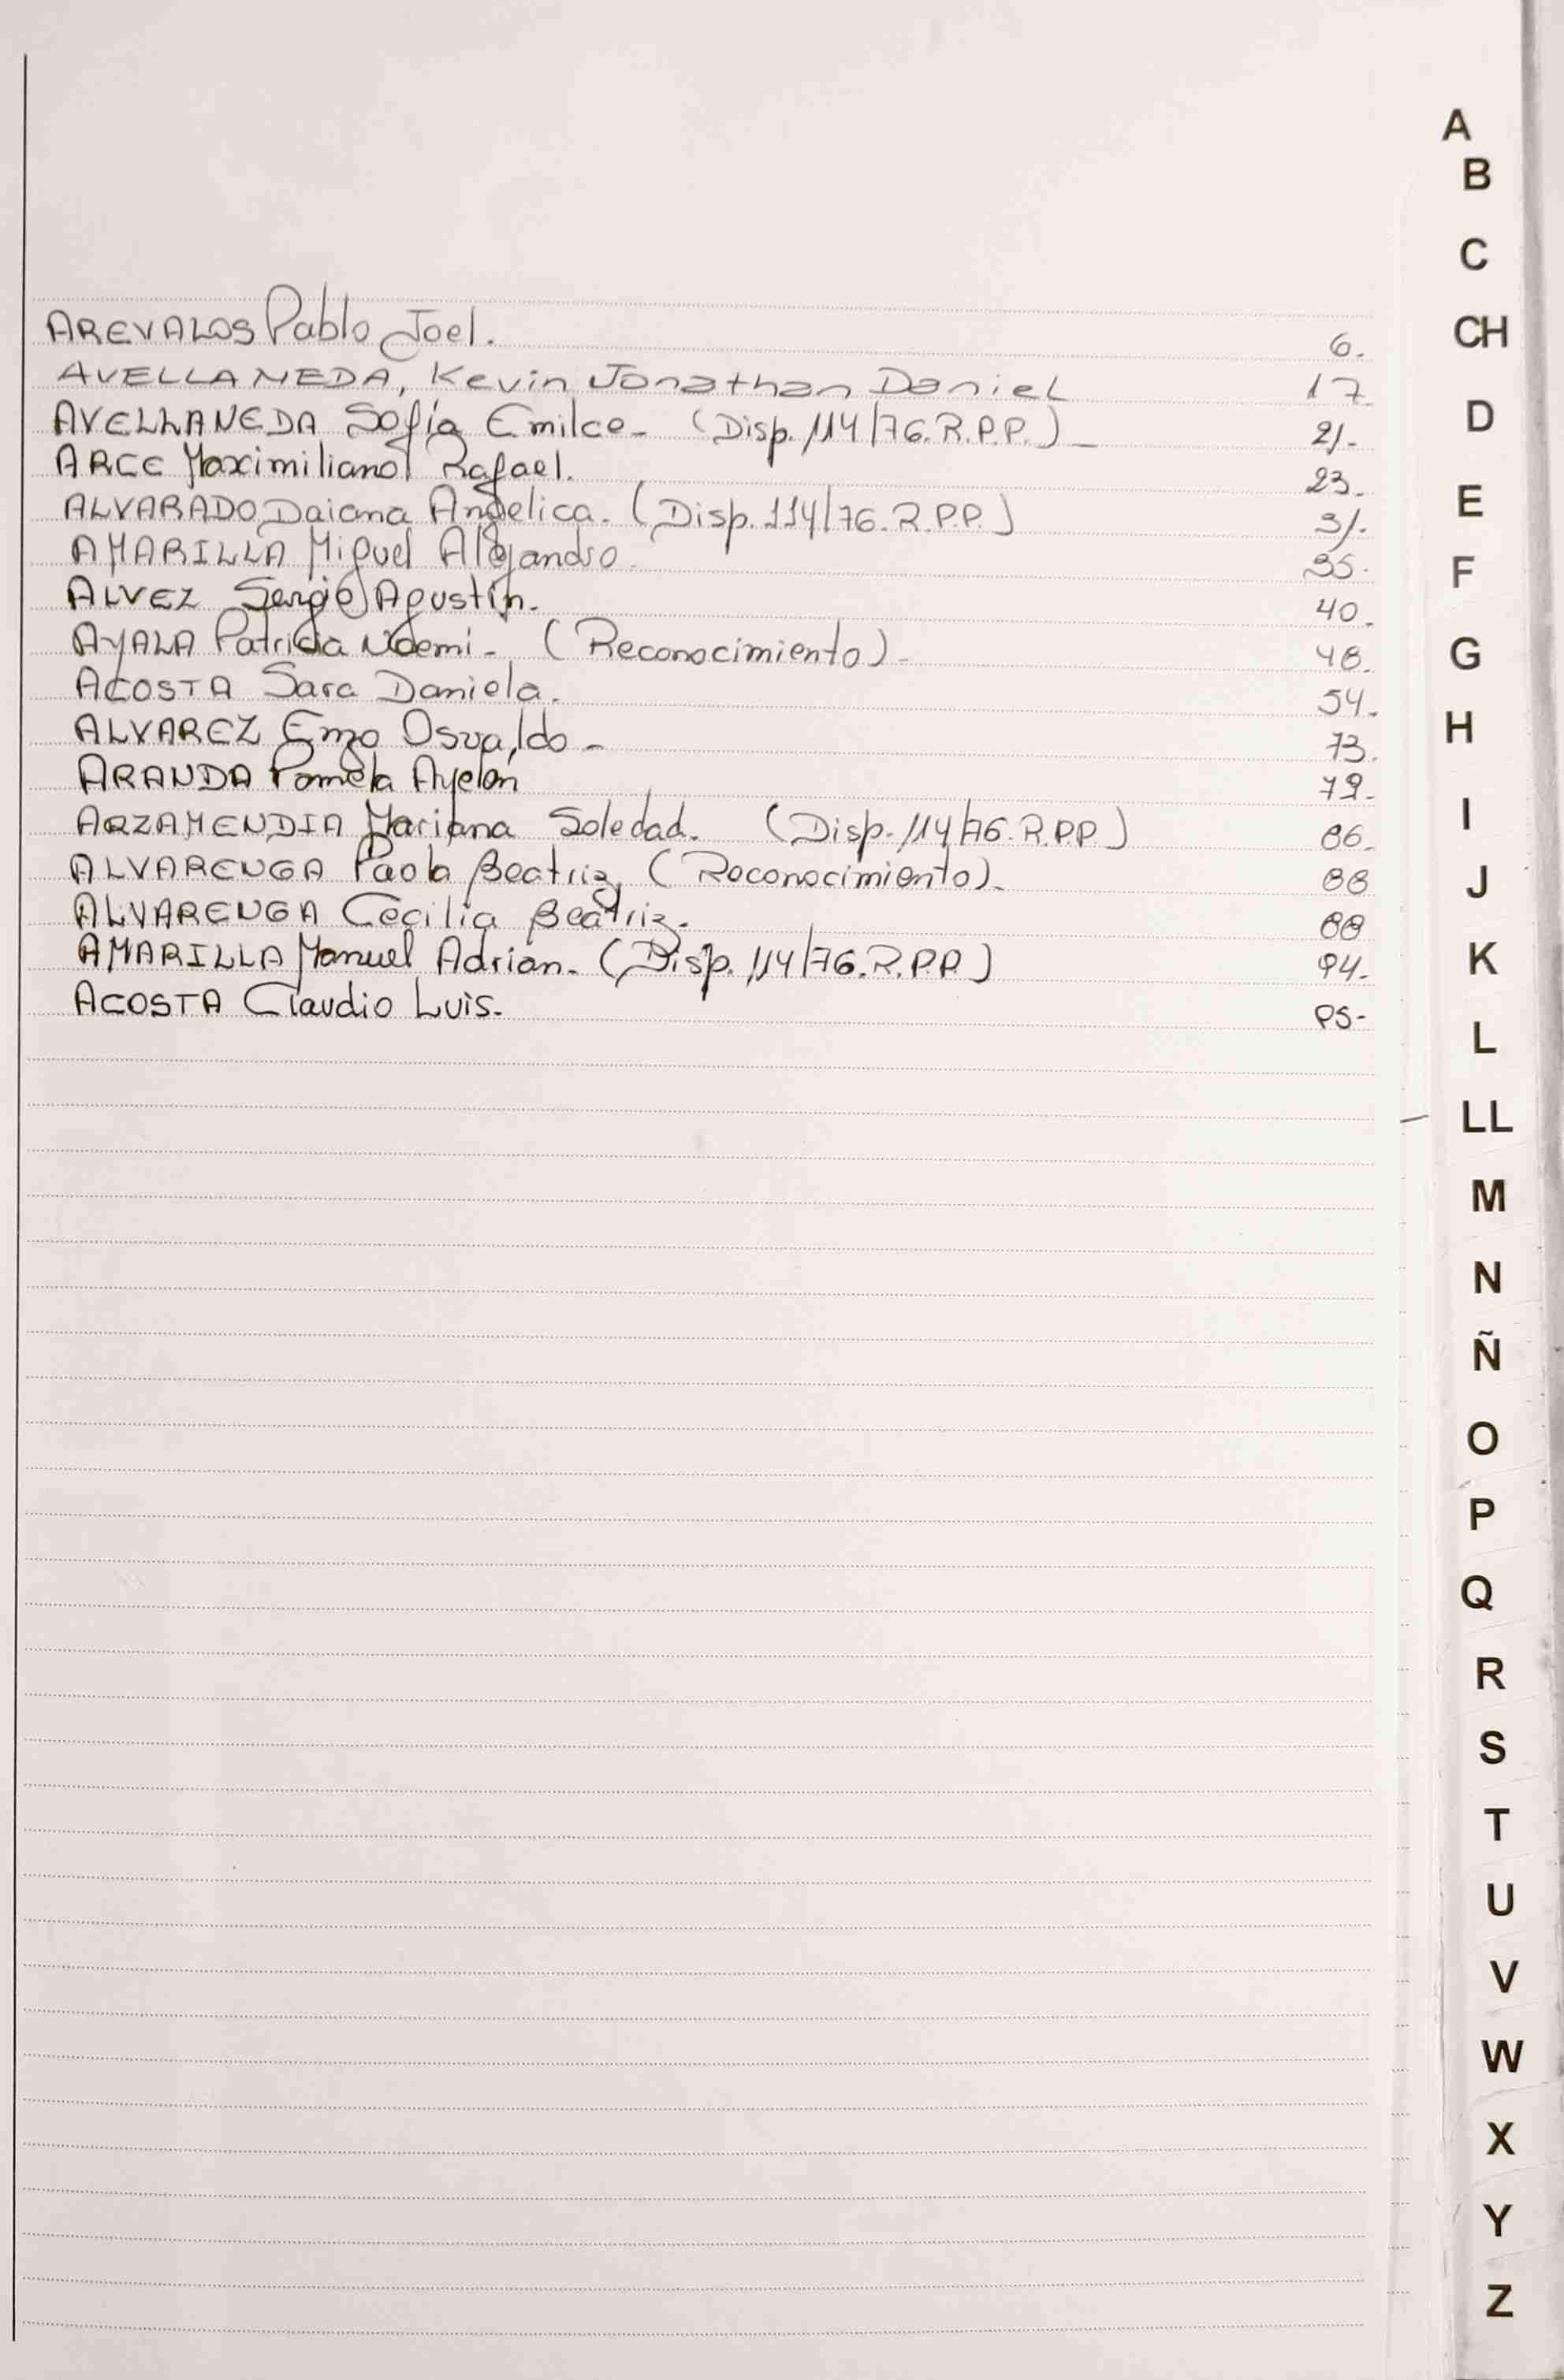 AREVALOS Pablo Joel. 6.
AVELLANEDA, Kevin Jonathan Daniel 17.
AVELLANEDA Sofía Emilce- (Disp. 114/76. R.P.P.)- 21.-
ARCE Maximiliano Rafael. 23.
ALVARADO Daiana Angelica. (Disp. 114/76. R.P.P.) 31.-
AMARILLA Miguel Alejandro. 35.
ALVEZ Sergio Agustín. 40.
AYALA Patricia Noemi- (Reconocimiento)- 48.
ACOSTA Sara Daniela. 54.
ALVAREZ Enzo Osvaldo- 73.
ARANDA Pamela Ayelén 79.
ARZAMENDIA Mariana Soledad. (Disp. 114/76. R.P.P.) 86.
ALVARENGA Paola Beatriz. (Reconocimiento). 88
ALVARENGA Cecilia Beatriz. 88
AMARILLA Manuel Adrian. (Disp. 114/76. R.P.P.) 94.
ACOSTA Claudio Luis. 95-
A
B
C
CH
D
E
F
G
H
I
J
K
L
LL
M
N
Ñ
O
P
Q
R
S
T
U
V
W
X
Y
Z